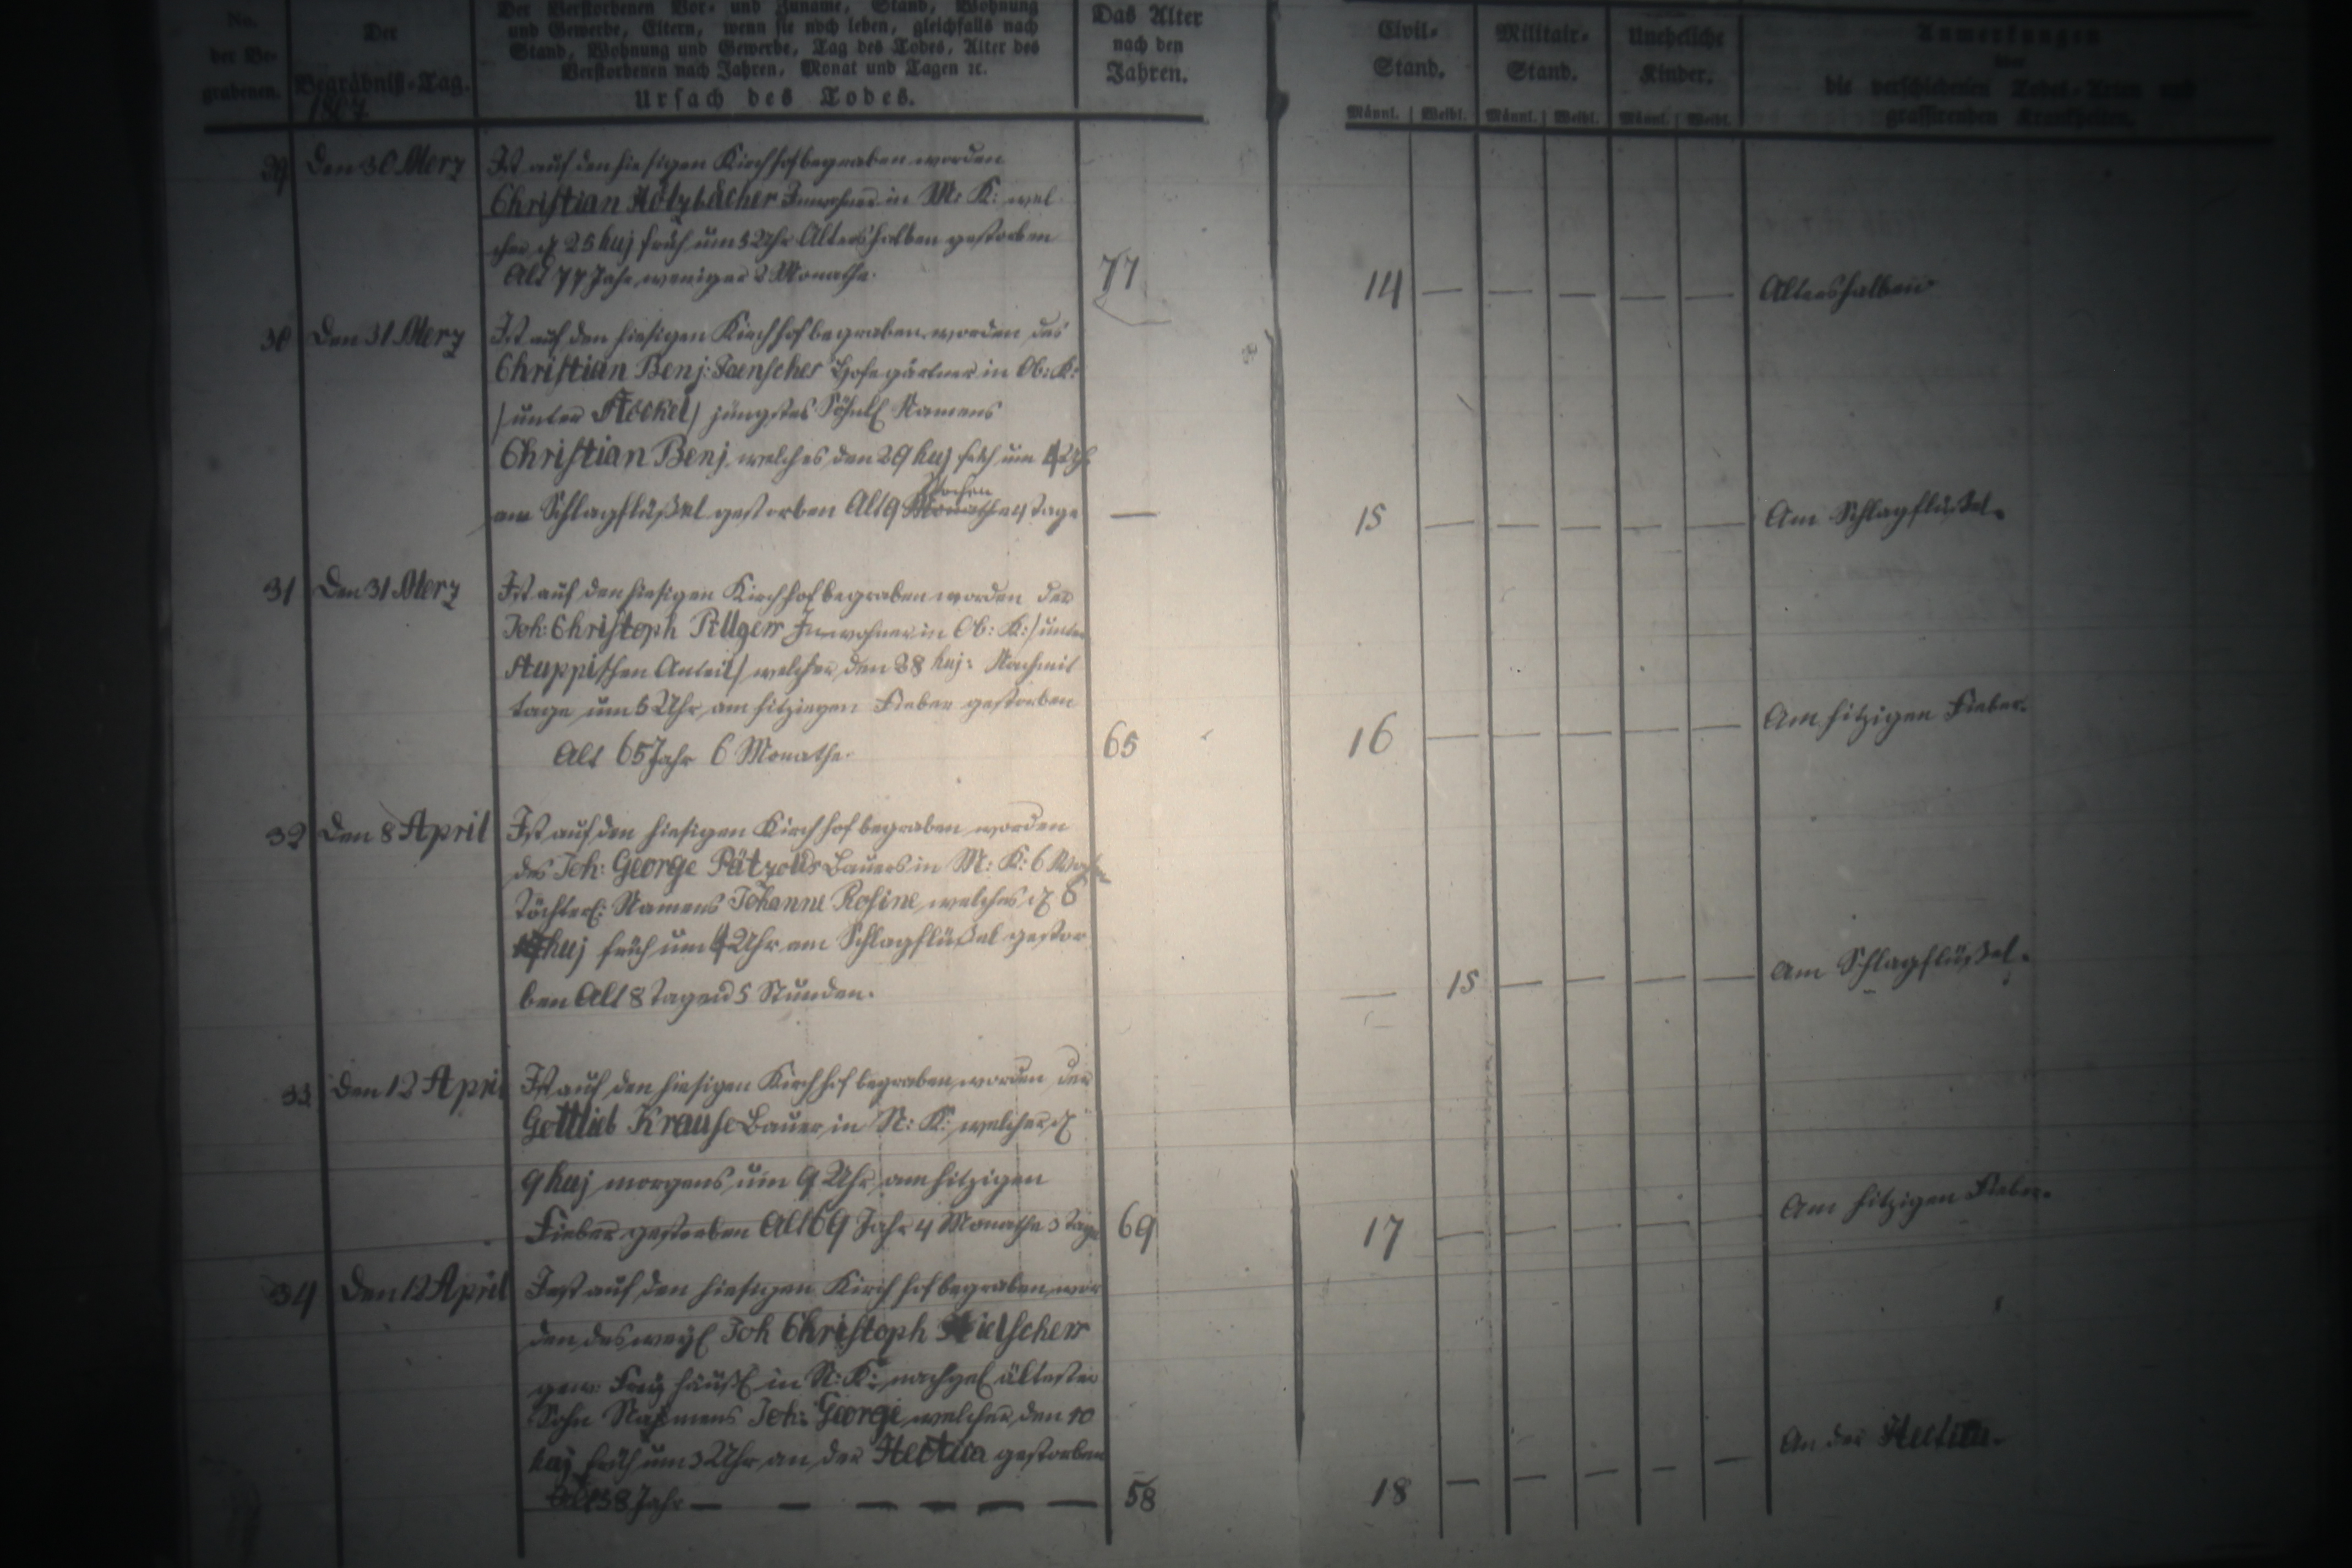 No. der Be- grabenen.
Der Begräbniß-Tag.
1807
Der Verstorbenen Vor- und Zuname, Stand, Wohnung
und Gewerbe, Eltern, wenn sie noch leben, gleichfalls nach
Stand, Wohnung und Gewerbe, Tag des Todes, Alter des
Verstorbenen nach Jahren, Monat und Tagen ꝛc.
Ursach des Todes.
Das Alter
nach den
Jahren.
Civil-
Stand.
Militair-
Stand.
Uneheliche
Kinder.
Anmerkungen
über
die verschiedenen Todes-Arten und
grassirenden Krankheiten.
Männl. Weibl. Männl. Weibl. Männl. Weibl.
29 Den 30 Merz Ist auf den hiesigen Kirchhof begraben worden
Christian Inwohner in M: K: wel
cher 25 huj früh um 3 Uhr Altershalben gestorben
Alt 77 Jahr weniger 2 Monathe. 77 14 — — — — — Altershalben
30 Den 31 Merz Ist auf den hiesigen Kirchhof begraben worden des
Christian Benj: Jaenscher Hofegärtner in Ob: K:
/unter Stöckel/ jüngstes Söhnl Namens
Christian Benj. welches den 29 huj früh um 4 Uhr
Wochen
am Schlagflüßel gestorben Alt 9 Monathe 4 Tage — 15 — — — — — Am Schlagflüßel.
31 Den 31 Merz Ist auf den hiesigen Kirchhof begraben worden der
Joh: Christoph Pillger Inwohner in Ob: K: /unter
Antheil/ welcher den 28 huj: Nachmit
tage um 5 Uhr am hitzigen Fieber gestorben
Alt 65 Jahr 6 Monathe. 65 16 — — — — — Am hitzigen Fieber.
32 Den 8 April Ist auf den hiesigen Kirchhof begraben worden
des Joh: George Pätzolds Bauers in M: K:
Töchterl: Namens Johanne Rosine welches 6
huj früh um 4 Uhr am Schlagflüßel gestor
ben Alt 8 Tage u 5 Stunden. — 15 — — — — Am Schlagflüßel.
33 Den 12 April Ist auf den hiesigen Kirchhof begraben worden der
Gottlieb Krause Bauer in N: K: welcher
9 huj morgens um 9 Uhr am hitzigen
Fieber gestorben Alt 69 Jahr 4 Monathe 3 Tage 69 17 — — — — — Am hitzigen Fieber.
34 Den 12 April Ist auf den hiesigen Kirchhof begraben wor
den des weyl Joh Christoph
gew: Frey häusl in N: K: nachgel ältester
Sohn Nahmens Joh: George welcher den 10
huj früh um 3 Uhr an der Hectica gestorben
Alt 58 Jahr — — — — — — — 58 18 — — — — — An der Hectica.